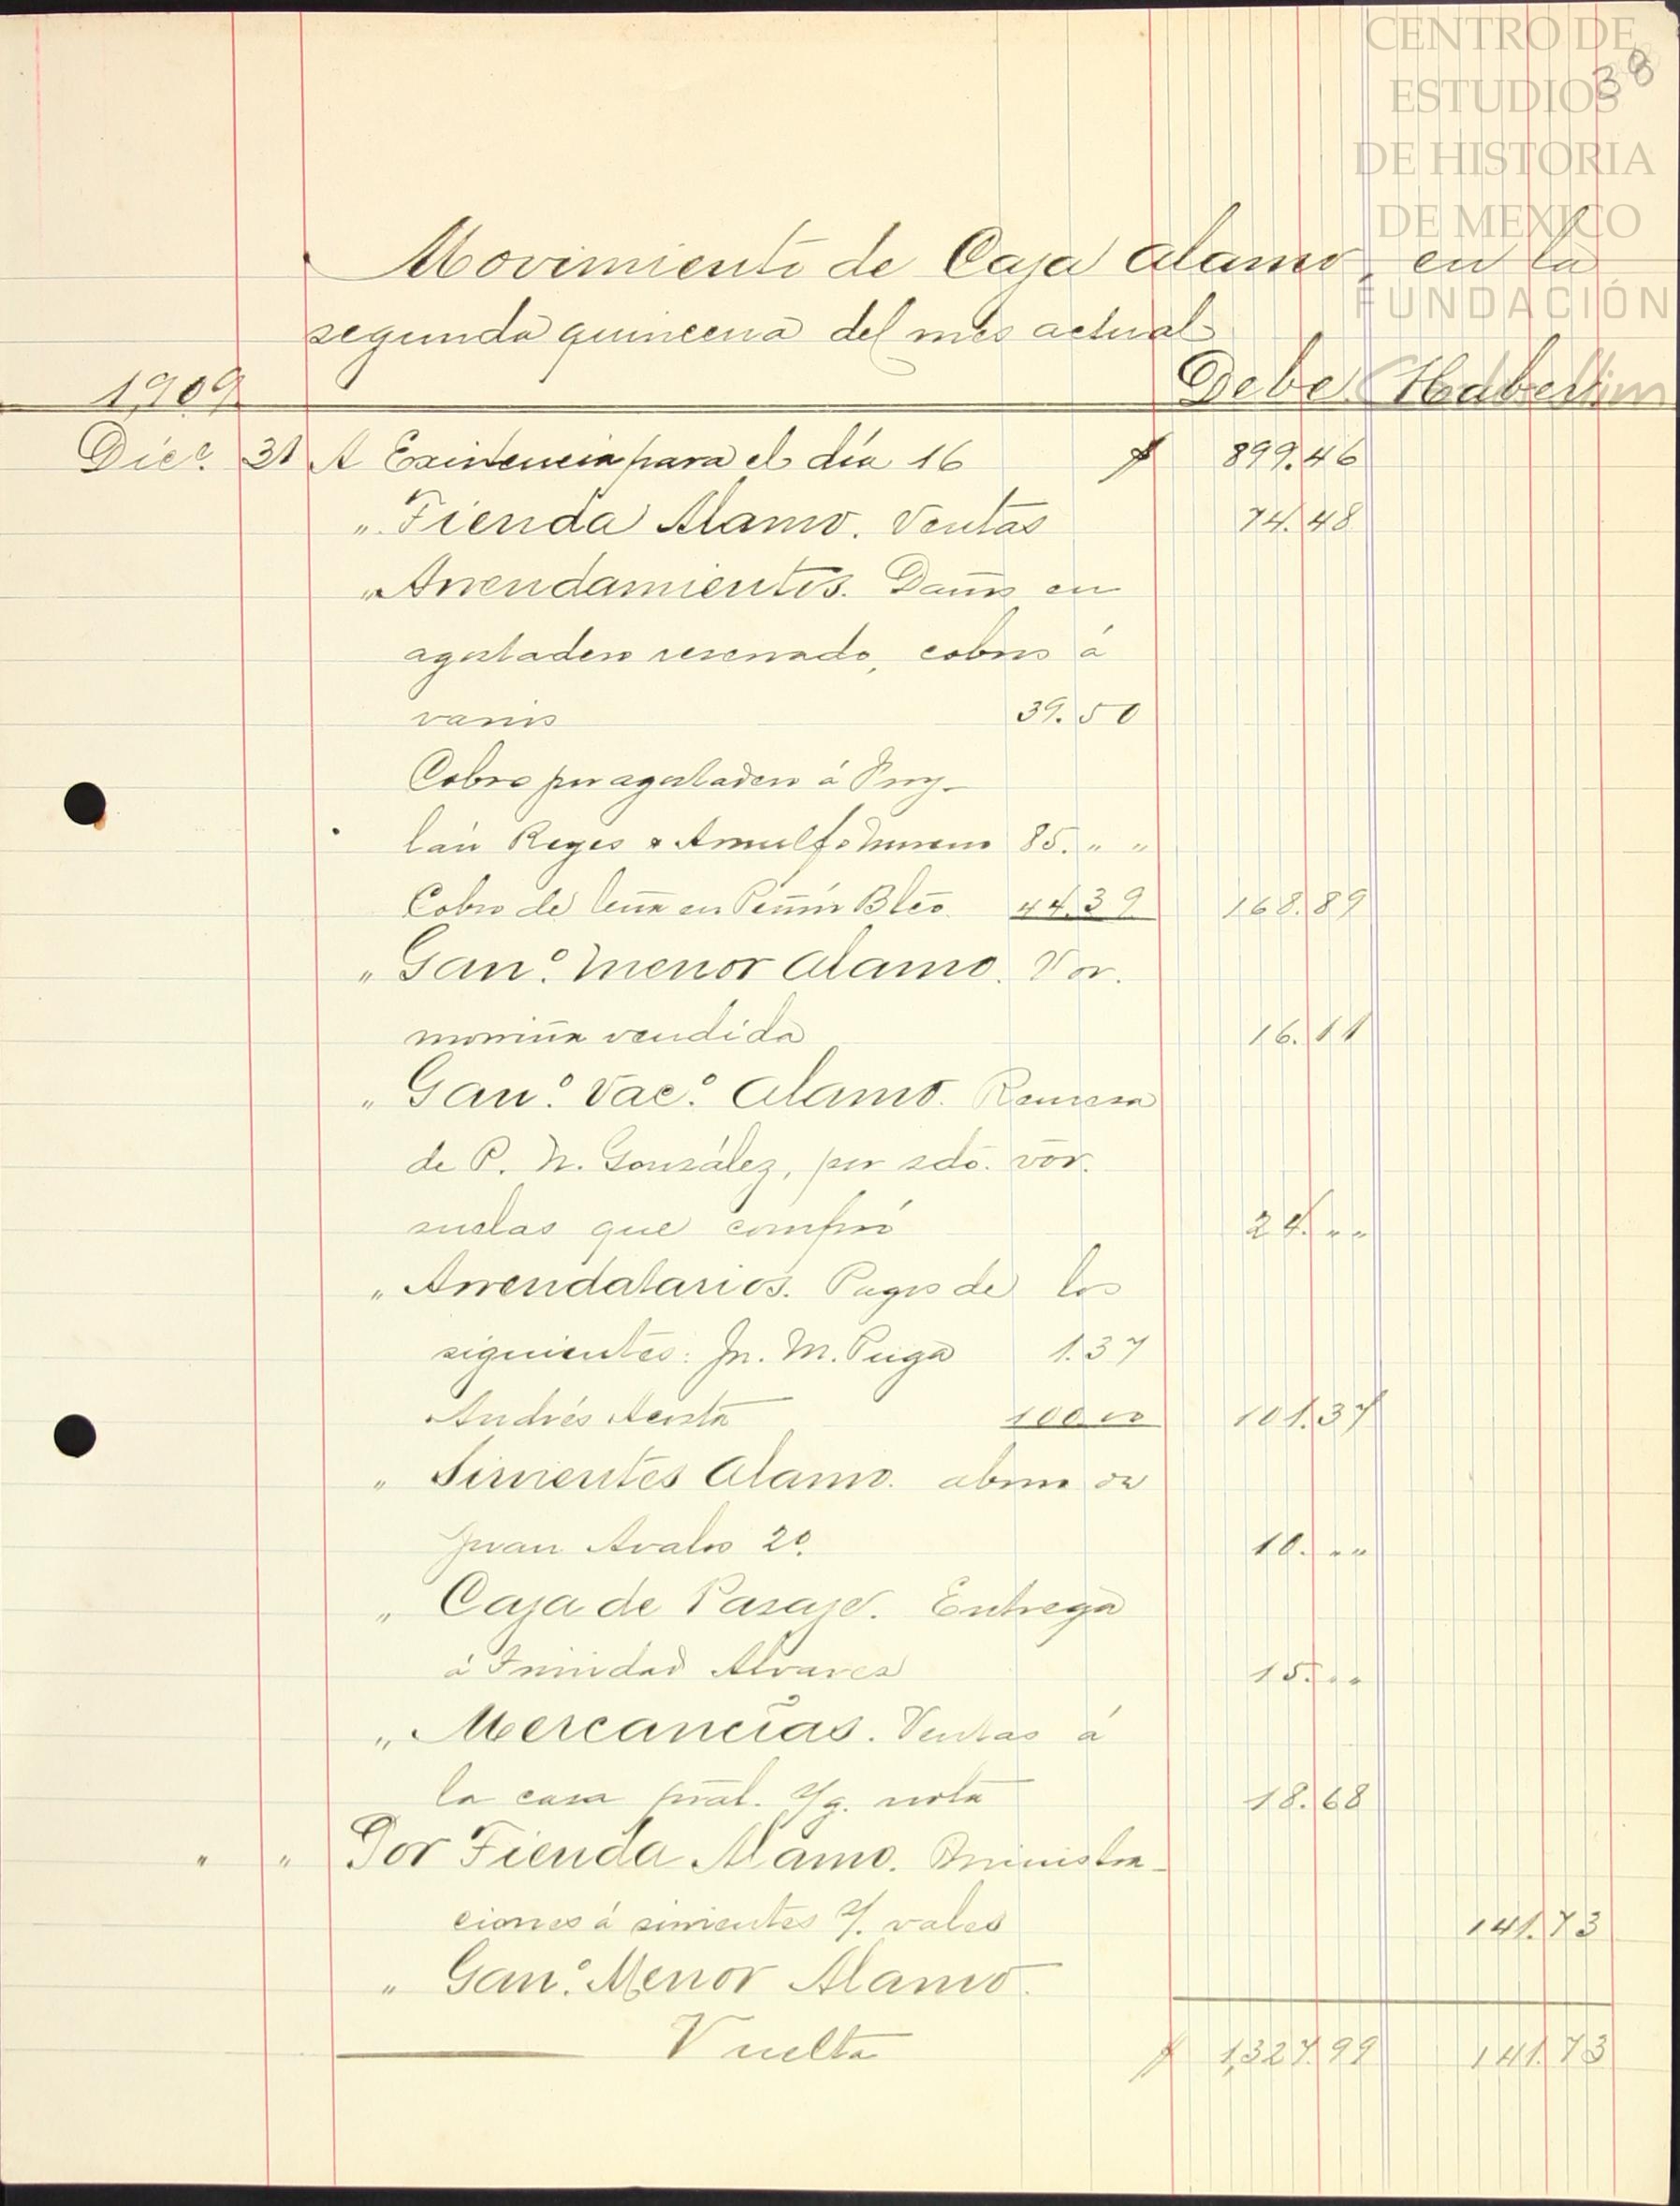 CENTRO DE
ESTUDIOS
DE HISTORIA
DE MEXICO
FUNDACIÓN
38
Movimiento de Caja Alamo, en la
segunda quincena del mes actual
1909 Debe Haber
Dice. 31 A Existencia para el día 16 $ 899.46
" Tienda Alamo. Ventas 74.48
" Arrendamientos. Daños en
agostadero reservado, cobros á
varios 39.50
Cobro por agostadero á Puy-
lán Reyes & Arnulfo Moreno 85. " "
Cobro de leña en Peñón Blco. 44.39 168.89
" Gano. Menor Alamo. Vor.
morriña vendida 16.11
" Gano. Vac.o Alamo. Remesa
de P. N. González, por sdo. vor.
suelas que compró 24. " "
" Arrendatarios. Pagos de los
siguientes: Jn. M. Puga 1.37
Andrés Acosta 100.00 101.37
" Sirvientes Alamo. abono de
Juan Avalos 2o. 10. " "
" Caja de Pasaje. Entrega
á Trinidad Alvarez 15. " "
" Mercancías. Ventas á
la casa pral. s/g. nota 18.68
" " Por Tienda Alamo. Ministra-
ciones á sirvientes s/. vales 141.73
" Gano. Menor Alamo.
Vuelta $ 1,327.99 141.73